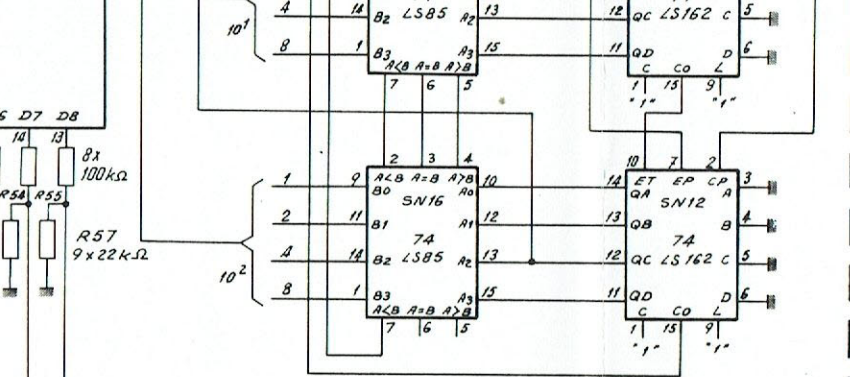 4 14 B2 LS85 A2 13 12 QC LS162 C 5
10¹
8 1 B3 A3 15 11 QD D 6
A<B A=B A>B C CO L
7 6 5 1 15 9
"1" "1"
6 D7 D8
14 13
8x
100kΩ
R54 R55
R57
9x22kΩ
2 3 4 10 7 2
A<B A=B A>B ET EP CP
1 9 B0 A0 10 14 QA A 3
SN16 SN12
2 11 B1 A1 12 13 QB B 4
74 74
4 14 B2 LS85 A2 13 12 QC LS162 C 5
10²
8 1 B3 A3 15 11 QD D 6
A<B A=B A>B C CO L
7 6 5 1 15 9
"1" "1"